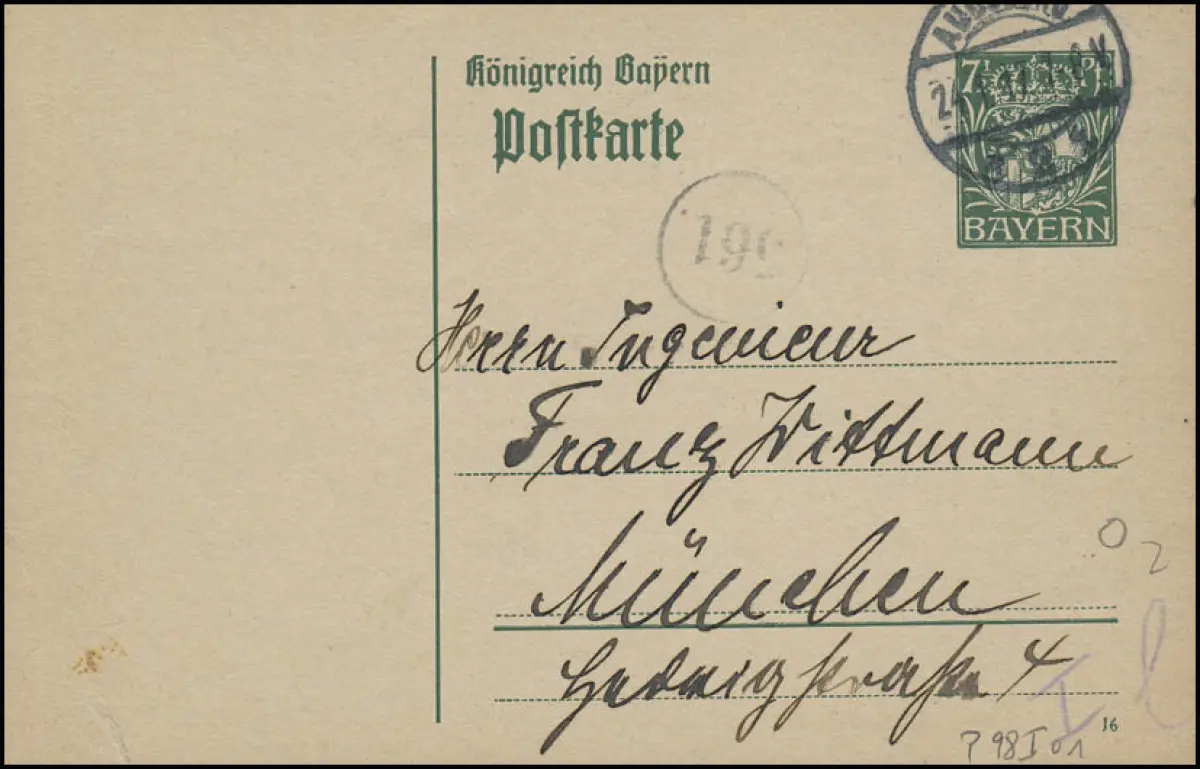 Königreich Bayern
Postkarte
7½ Pf
BAYERN
Herrn Ingenieur
Franz Wittmann
München
Hedwigstraße 4
I
16
P 98 I 01